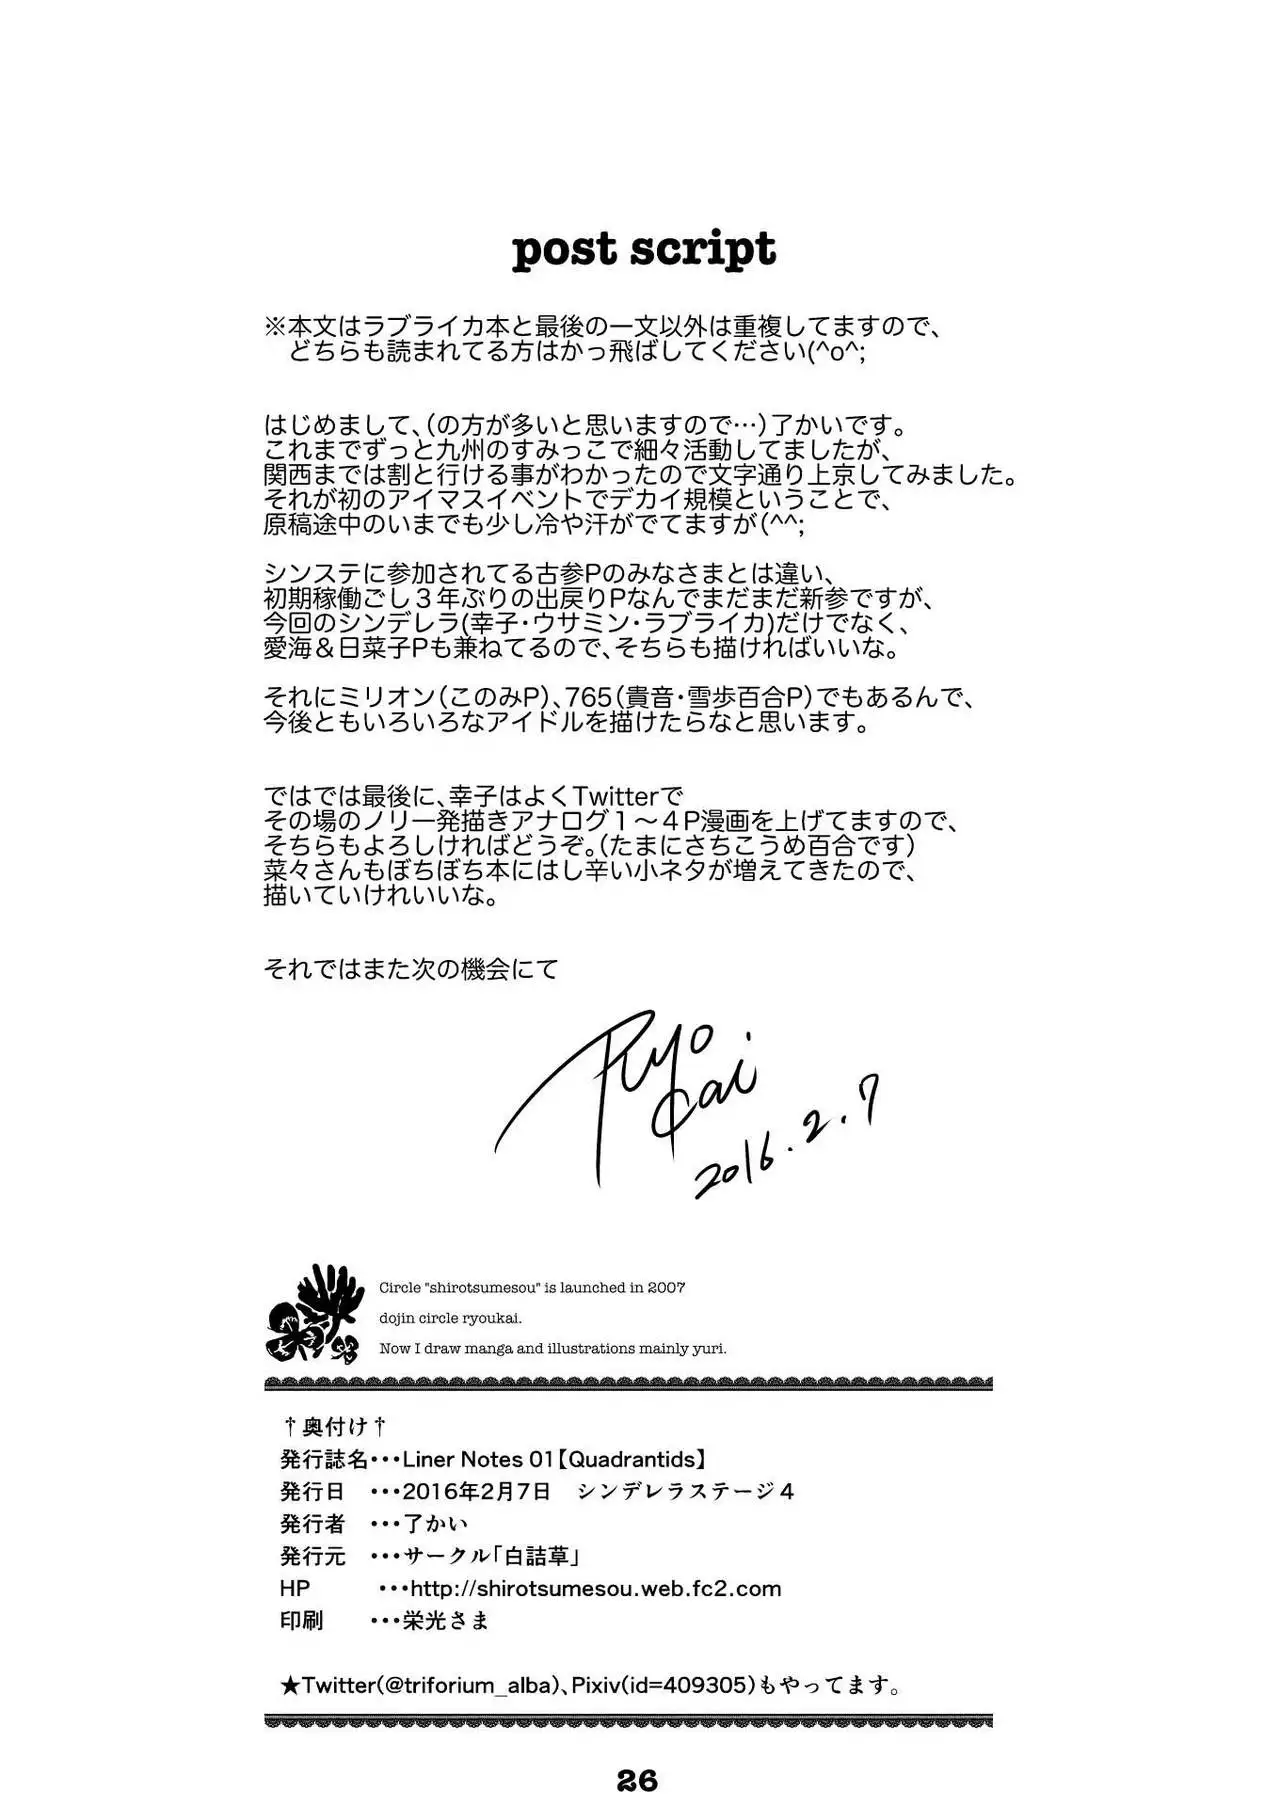 post script
※本文はラブライカ本と最後の一文以外は重複してますので、
どちらも読まれてる方はかっ飛ばしてください(^o^;
はじめまして、（の方が多いと思いますので…）了かいです。
これまでずっと九州のすみっこで細々活動してましたが、
関西までは割と行ける事がわかったので文字通り上京してみました。
それが初のアイマスイベントでデカイ規模ということで、
原稿途中のいまでも少し冷や汗がでてますが（^^;
シンステに参加されてる古参Pのみなさまとは違い、
初期稼働ごし３年ぶりの出戻りPなんでまだまだ新参ですが、
今回のシンデレラ(幸子・ウサミン・ラブライカ)だけでなく、
愛海＆日菜子Pも兼ねてるので、そちらも描ければいいな。
それにミリオン（このみP）、765（貴音・雪歩百合P）でもあるんで、
今後ともいろいろなアイドルを描けたらなと思います。
ではでは最後に、幸子はよくTwitterで
その場のノリ一発描きアナログ１～４P漫画を上げてますので、
そちらもよろしければどうぞ。（たまにさちこうめ百合です）
菜々さんもぼちぼち本にはし辛い小ネタが増えてきたので、
描いていけれいいな。
それではまた次の機会にて
Ryo
Cai
2016.2.7
Circle "shirotsumesou" is launched in 2007
dojin circle ryoukai.
Now I draw manga and illustrations mainly yuri.
†奥付け†
発行誌名・・・Liner Notes 01【Quadrantids】
発行日　・・・2016年2月7日　シンデレラステージ４
発行者　・・・了かい
発行元　・・・サークル「白詰草」
HP　・・・http://shirotsumesou.web.fc2.com
印刷　・・・栄光さま
★Twitter(@triforium_alba)、Pixiv(id=409305)もやってます。
26